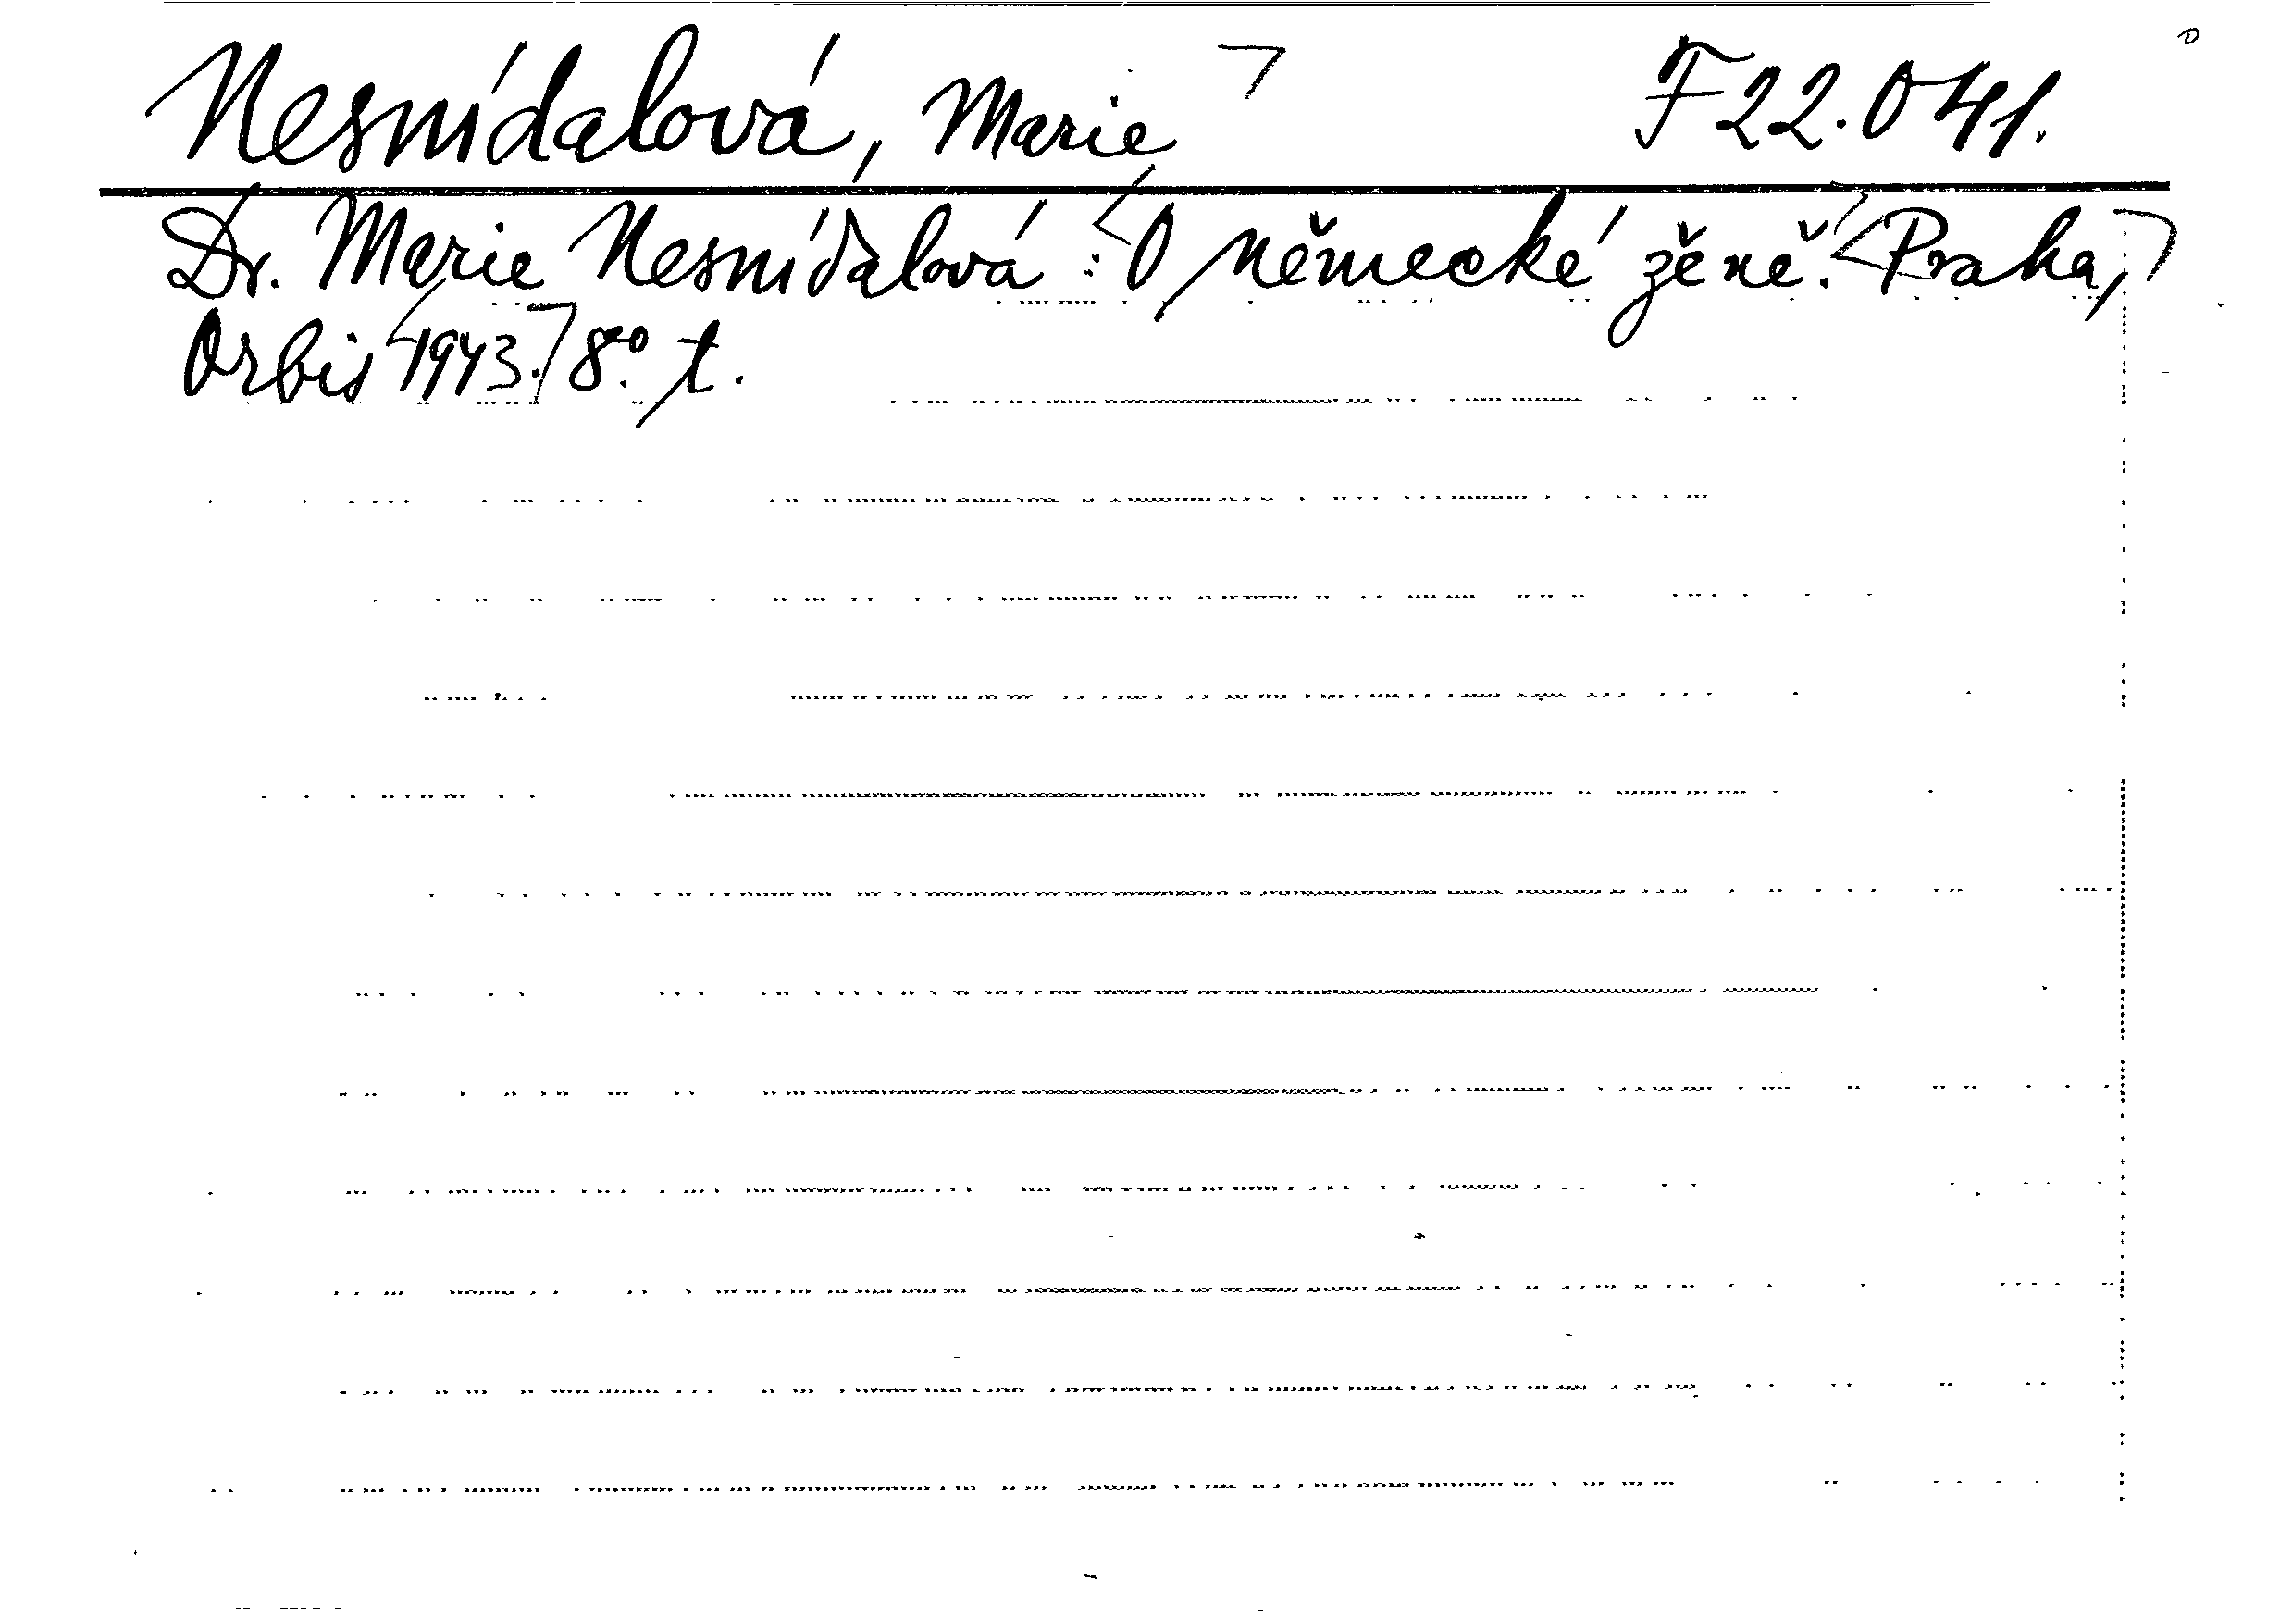 Nesnídalová, Marie F 22.041.
Dr. Marie Nesnídalová: O německé ženě. Praha,
Orbis 1943. 8°. t.